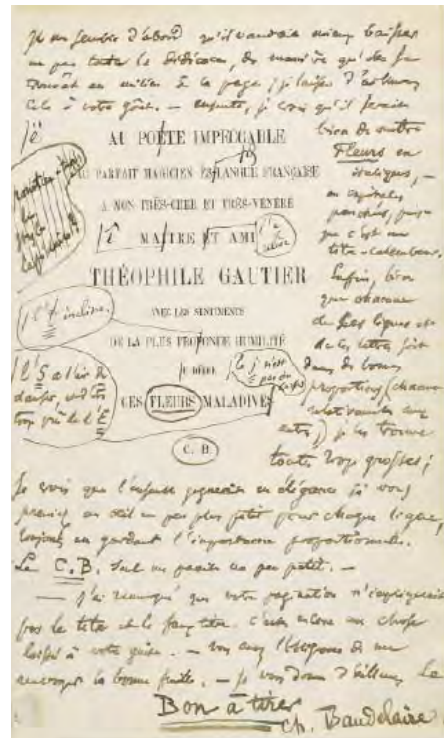 Il me semble d'abord qu'il vaudrait mieux baisser
un peu toute la dédicace, de manière qu'elle se
trouvât au milieu de la page; je laisse d'ailleurs
cela à votre goût. — Ensuite, je crois qu'il serait
bien de mettre
Fleurs en
italiques, —
en capitales
penchées, puis-
que c'est un
titre-calembour.
Enfin, bien
que chacune
de ces lignes et
de ces lettres soit
dans de bonnes
proportions (chacune
relativement aux
autres), je les trouve
toutes trop grosses;
AU POËTE IMPECCABLE
AU PARFAIT MAGICIEN ÈS LANGUE FRANÇAISE
A MON TRÈS-CHER ET TRÈS-VÉNÉRÉ
MAITRE ET AMI
THÉOPHILE GAUTIER
AVEC LES SENTIMENTS
DE LA PLUS PROFONDE HUMILITÉ
JE DÉDIE
CES FLEURS MALADIVES
C. B.
l'S a l'air de
danser, et est
trop près de l'E
le j n'est
pas du
corps
je crois que l'ensemble gagnerait en élégance si vous
preniez un œil un peu plus petit pour chaque ligne,
toujours en gardant l'importance proportionnelle.
Le C.B. seul me paraît un peu petit. —
— J'ai remarqué que votre pagination n'impliquait
pas le titre et le faux titre. c'est encore une chose
laissée à votre guise. — vous l'obligeance de me
renvoyer la bonne feuille. — je vous donne d'ailleurs Le
Bon à tirer
Ch. Baudelaire